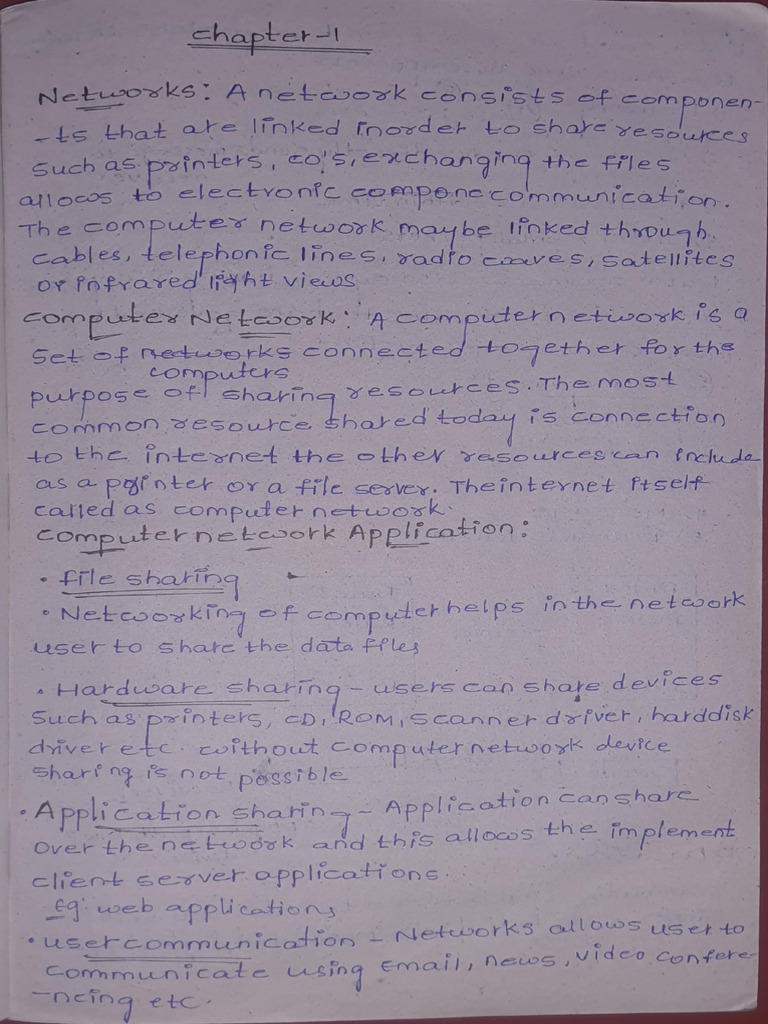 chapter-1
Networks: A network consists of componen-
-ts that are linked inorder to share resources
such as printers, co's, exchanging the files
allows to electronic compone communication.
The computer network maybe linked through
cables, telephonic lines, radio waves, satellites
or infrared light views
computer Network: A computer network is a
set of networks connected together for the
computers
purpose of sharing resources. The most
common resource shared today is connection
to the internet the other resources can include
as a printer or a file server. The internet itself
called as computer network.
computer network Application:
• file sharing
• Networking of computer helps in the network
user to share the data files
• Hardware sharing - users can share devices
such as printers, CD, ROM, scanner driver, harddisk
driver etc. without computer network device
sharing is not possible
• Application sharing - Application can share
over the network and this allows the implement
client server applications.
Eg: web applications
• user communication - Networks allows user to
communicate using Email, news, video confere-
-ncing etc.